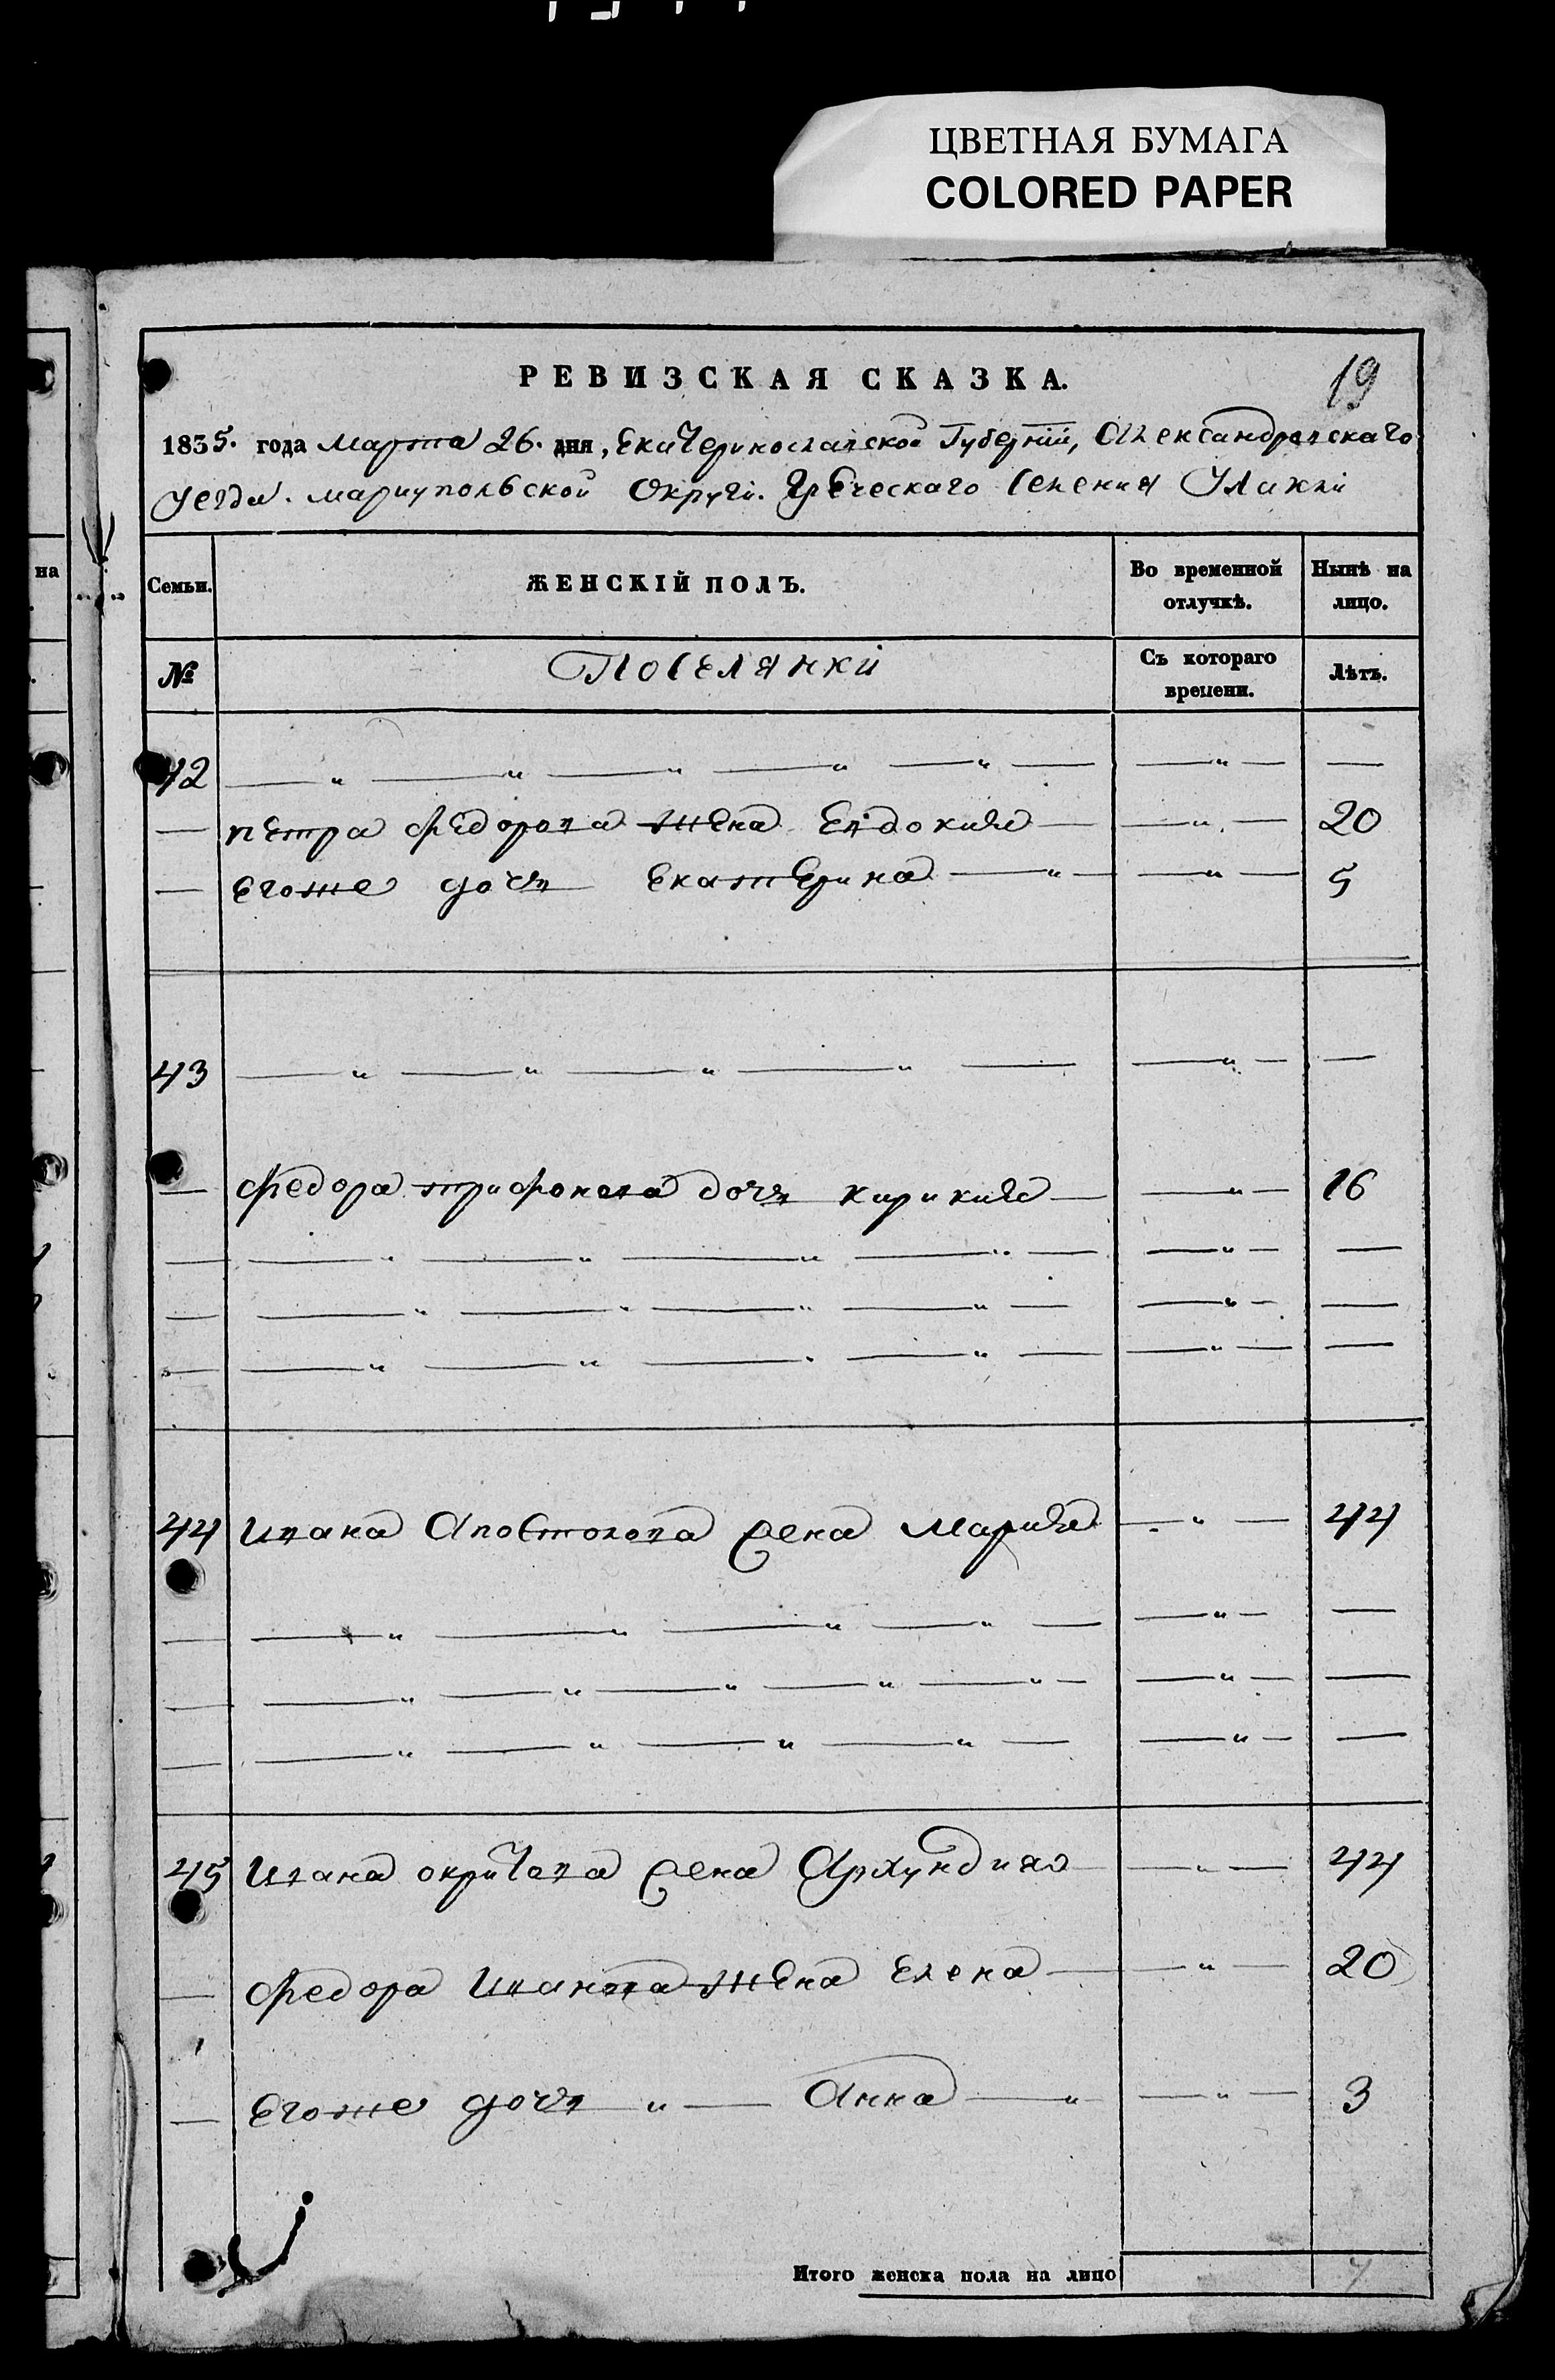 ЦВЕТНАЯ БУМАГА
COLORED PAPER
РЕВИЗСКАЯ СКАЗКА. 19
1835. года марта 26. дня, Екатеринославской Губернии, Александровскаго
уезда. мариупольской Округи. Греческаго Селения Улаклі
Семьи. ЖЕНСКІЙ ПОЛЪ. Во временной отлучкѣ. Нынѣ на лицо.
№ Поселянкі Съ котораго времени. Лѣтъ.
42 — „ — „ — „ — „ — „ — — „ — —
— петра федорова жена Евдокия — — „ — 20
— Егоже дочь Екатерина — „ — — „ — 5
43 — „ — „ — „ — „ — — „ — —
— федора трифонова дочь кирикия — — „ — 16
— — „ — „ — „ — „ — — „ — —
— — „ — „ — „ — „ — — „ — —
— — „ — „ — „ — „ — — „ — —
44 ивана Апостолова жена Мария — „ — 44
— — „ — „ — „ — „ — — „ — —
— — „ — „ — „ — „ — „ — — „ — —
— — „ — „ — „ — „ — — „ — —
45 ивана окричева жена Архундия — „ — 44
— федора иванова жена Елена — — „ — 20
— Егоже дочь „ — Анна — „ — „ — 3
Итого женска пола на лицо 7
на